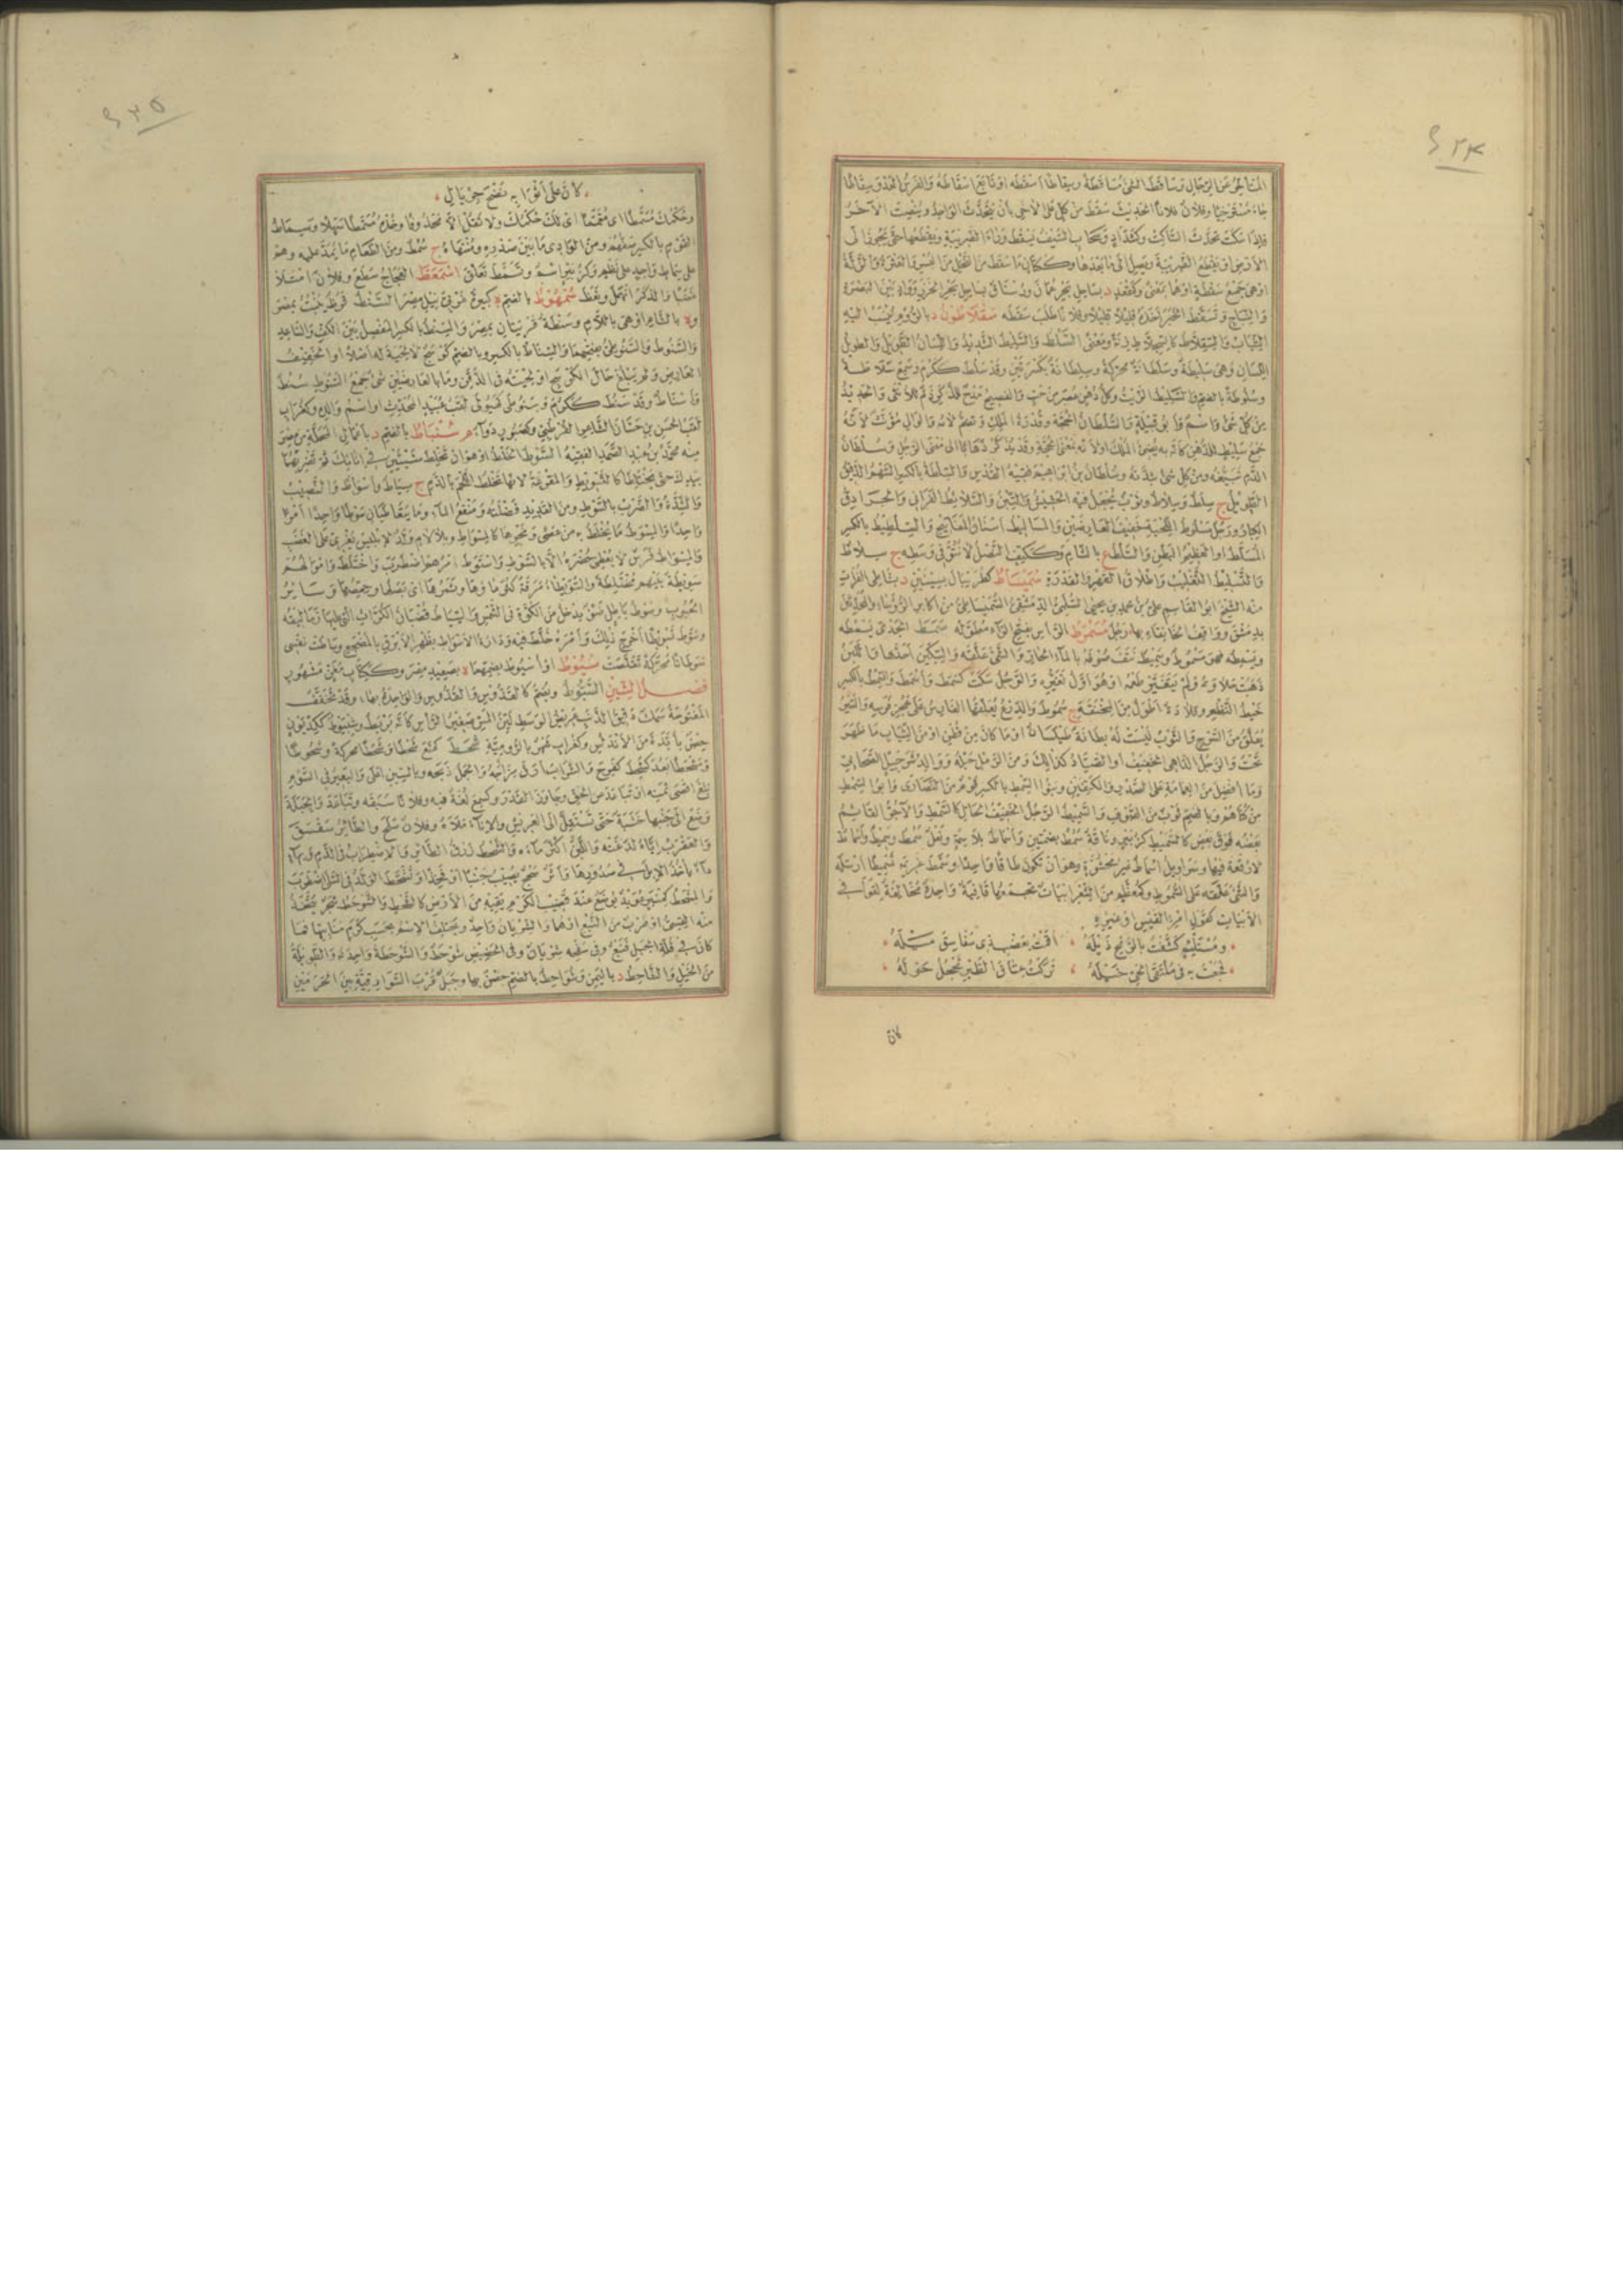 المتأخر عن الرجال وساقط الشئ مساقطة وسقاطا اسقطه او تابع اسقاطه والفرس العدو سقاطا
جاء مسترخيا وفلان فلانا الحديث سقط من كل على الآخر بأن يتحدث الواحد وينصت الآخر
فاذا سكت تحدث الساكت وكشداد وسحاب السيف يسقط وراء الضريبة ويقطعها حتى يجوز الى
الارض او يقطع الضريبة ويصل الى ما بعدها وككتاب ما سقط من النخل من البسر والعثرة والزلة
او هى جمع سقطة او هما بمعنى وكمقعد د بساحل بحر عمان ورستاق بساحل بحر الخزر وواد بين البصرة
والنباج وتسقط الخبر اخذه قليلا قليلا وفلانا طلب سقطه سقلاطون د بالروم ينسب اليه
الثياب والسقلاط
اللسان وهى سليطة وسلطانة محركة وسلطانة بكسرتين وقد سلط ككرم وسمع سلاطة
وسلوطة بالضم والسليط الزيت وكل دهن عصر من حب والفصيح مدح للذكر ذم للانثى والحديد
من كل شئ واسم وابو قبيلة والسلطان الحجة وقدرة الملك وتضم لامه والوالى مؤنث لانه
جمع سليط للدهن كأنه به يضئ الملك او لانه بمعنى الحجة وقد يذكر ذهابا الى معنى الرجل وسلطان
الدم تبيغه ومن كل شئ شدته وسلطان بن ابراهيم فقيه القدس والسلطة بالكسر السهم الدقيق
الطويل ج سلط وسلاط وثوب يجعل فيه الحشيش والتبن
ورجل مسلوط اللحية خفيف العارضين والمساليط اسنان المفاتيح والسلطيط بالكسر
المسلط او العظيم البطن والسلطع بالشام وككتف النصل لا نتو فى وسطه ج سلاط
والتسليط التغليب واطلاق القهر والقدرة سميساط كطربيال بسينين د بشاطئ الفرات
منه الشيخ ابو القاسم على بن محمد بن يحيى السلمى الدمشقى السميساطى من اكابر الرؤساء والمحدثين
بدمشق وواقف الخانقاه بها رجل مسمرط الرأس بفتح الراء مطوله سمط الجدى يسمطه
ويسمطه فهو مسموط وسميط نتف صوفه بالماء الحار والشئ علقه والسكين احدها واللبن
ذهبت حلاوته ولم يتغير طعمه او هو اول تغيره والرجل سكت كسمط واسمط والسمط بالكسر
خيط النظم وقلادة اطول من المخنقة ج سموط والدرع يعلقها الفارس على عجز فرسه والسير
يعلق من السرج والثوب ليست له بطانة طيلسان او ما كان من قطن او من الثياب ما ظهر من
تحت والرجل الداهى الخفيف او الصياد كذلك ومن الرمل حبله ووالد شرحبيل الصحابى
وما افضل من العمامة على الصدر والكتفين وبنو السمط بالكسر قوم من النصارى وابو السمط
من كناهم وبالضم ثوب من الصوف والسميط الرجل الخفيف الحال كالسمط والآجر القائم
بعضه فوق بعض كالسميط كزبير وناقة سمط بضمتين واسماط بلا سمة ونعل سمط وسميط واسماط
لا رقعة فيها وسراويل اسماط غير محشوة وهو ان تكون طاقا واحدا وسمط غريمه تسميطا ارسله
والشئ علقه على السموط وكمعظم من الشعر ابيات تجمعها قافية واحدة مخالفة لقوافى
الابيات كقول امرئ القيس او غيره
ومستلئم كشفت بالرمح ذيله ، اقمت بعضب ذى سفاسق ميله
فجعت به فى ملتقى الحى خيله ، تركت عتاق الطير تحجل حوله
كأن
كأن على اثوابه نضح جريال
وحكمك مسمطا اى متمما اى لك حكمك ولا تقل الا محذوفا وخذه مسمطا سهلا وسماط
القوم بالكسر صفهم ومن الوادى ما بين صدره ومنتهاه ج سمط ومن الطعام ما يمد عليه وهم
على سماط واحد على نظم وكزبير اسم وتسمط تعلق اسمعط العجاج سطع وفلان امتلا
غضبا والذكر اتمهل ونعظ سمهوط بالضم ة كبيرة غربى نيل مصر السنط قرظ ينبت بمصر
و ة بالشام او هى باللام وسنطة قريتان بمصر والسنط بالكسر المفصل بين الكف والساعد
والسنوط والسنوطى بفتحهما والسناط بالكسر وبالضم كوسج لا لحية له اصلا او الخفيف
العارض ولم يبلغ حال الكوسج او لحيته فى الذقن وما بالعارضين شئ جمع السنوط سنط
واسناط وقد سنط ككرم وسنوطى كهيولى لقب عبيد المحدث او اسم والده وكغراب
لقب الحسن بن حسان الشاعر القرطبى وكصبور دواء م سنباط بالضم د باعمال المحلة من مصر
منه محمد بن عبد الصمد الفقيه السوط الخلط او هو ان تخلط شيئين فى انائك ثم تضربهما
بيدك حتى يختلطا كالتسويط والمقرعة لانها تخلط اللحم بالدم ج سياط واسواط والنصيب
والشدة والضرب بالسوط ومن الغدير فضلته ومنقع الماء وما يتعاطيان سوطا واحدا امرا
واحدا والمسوط ما يخلط به من عصى ونحوها كالمسواط وبلا لام ولد لابليس يغرى على الغضب
والمسواط فرس لا يعطى حضره الا بالسوط واستوط امرهم اضطرب واختلط واموالهم
سويطة بينهم مختلطة والسويطاء مرقة كثر ماؤها وثمرها اى بصلها وحمصها وسائر
الحبوب وسوط باطل ضوء يدخل من الكوة فى الشمس والسياط قضبان الكراث التى عليها زماليقه
وسوط تسويطا اخرج ذلك وامره خلط فيه ودارة الاسواط بظهر الابرق بالمضجع وساطت نفسى
سوطانا محركة تقلصت سيوط او اسيوط بضمهما ة بصعيد مصر وككتاب مغن مشهور
فصل الشين الشبوط ويضم كالقدوس والقدوس والواحدة بهاء وقد تخفف
المفتوحة سمك دقيق الذنب عريض الوسط لين المس صغير الرأس كأنه بربط
حصن بأبدة من الاندلس وكغراب شهر بالرومية شحط كمنع شحطا وشحطا محركة وشحوطا
ومشحطا بعد كشحط كفرح والشراب ارق مزاجه والجمل ذبحه وبالسين اعلى والبعير فى السوم
بلغ اقصى ثمنه او تباعد عن الحق وجاوز القدر وكسمع لغة فيه وفلانا سبقه وتباعد والحبلة
وضع الى جنبها خشبة حتى تستقل الى العريش والاناء ملأه وفلان سلح والطائر سقسق
والعقرب اياه لدغته واللبن اكثر ماءه والشحط ذرق الطائر والاضطراب فى الدم وبهاء
داء يأخذ الابل فى صدورها واثر سحج يصيب جنبا او فخذا وتشحط الولد فى السلى اضطرب
والمشحط كمنبر عويد يوضع عند قضيب الكرم يقيه من الارض كالشحط والشوحط شجر يتخذ
منه القسى او ضرب من النبع او هما والشريان واحد ويختلف الاسم بحسب كرم منابتها فما
كان فى قلة الجبل فنبع وفى سفحه شريان وفى الحضيض شوحط والشوحطة واحده والطويلة
من الخيل والشاحط د باليمن وشواحط بالضم حصن بها وجبل قرب السوارقية بين الحرمين